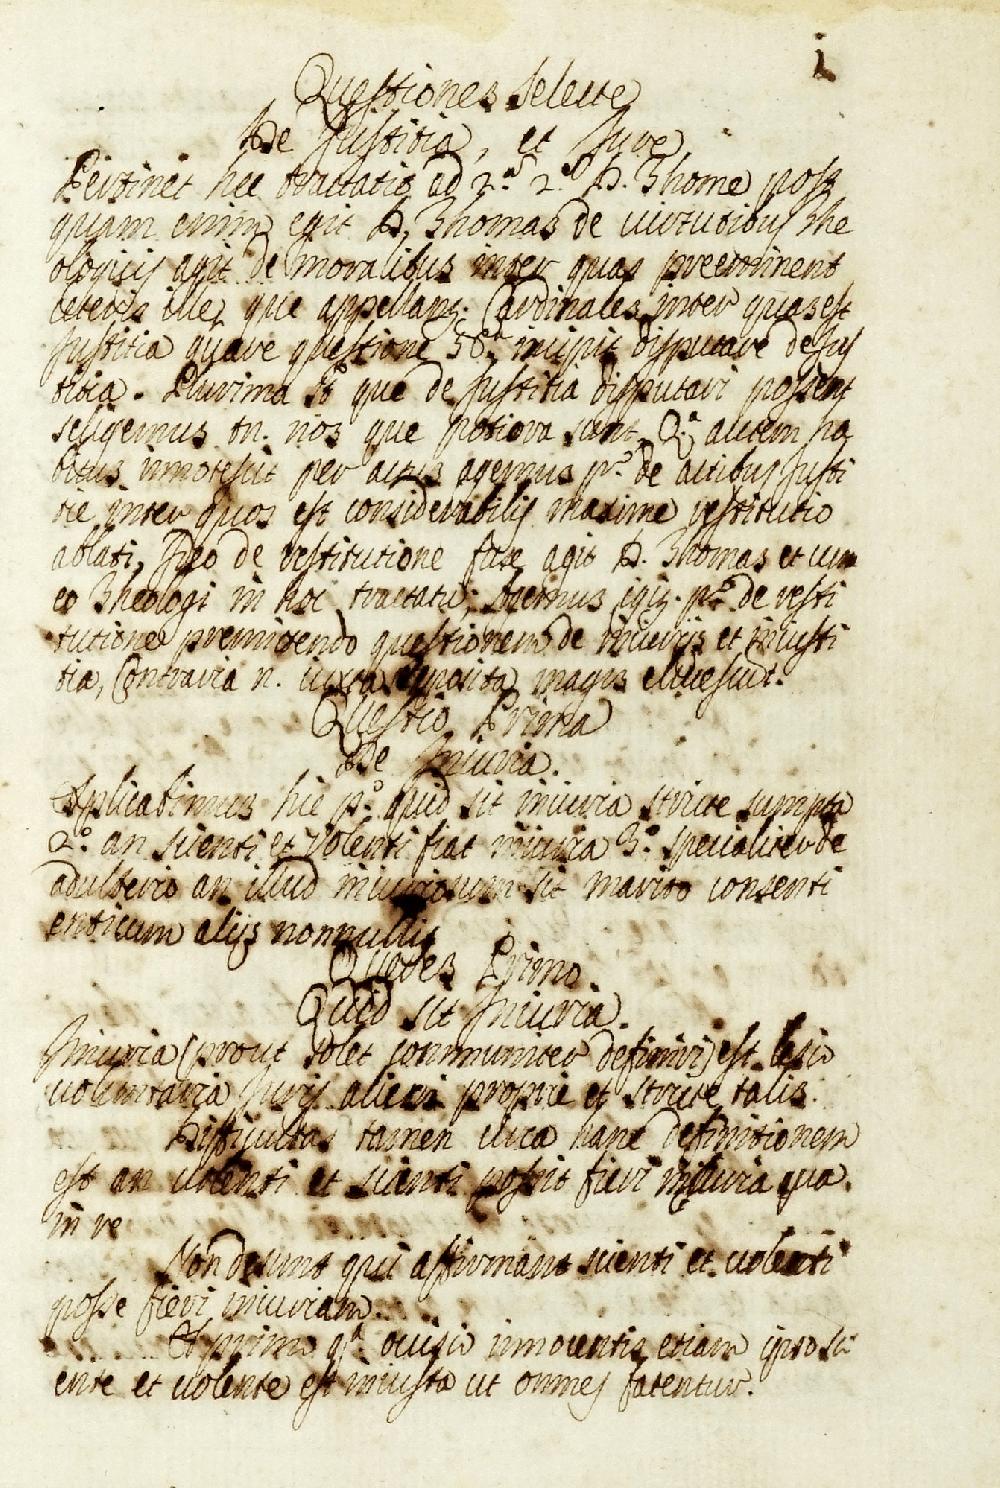 1
Questiones Selecte
De Justitia, et Jure
Pertinet hec tractatio ad 2.ª 2.ᵉ D. Thome post
quam enim egit D. Thomas de virtutibus The
ologicis agit de moralibus inter quas preeminent
ceteris ille, que appellant.ʳ Cardinales, inter quas est
Justitia quare questione 58.ª incipit disputare de Jus
titia. Plurima st̄ que de Justitia disputari possent
seligemus tn. nos que potiora sunt. Q.ª autem ha
bitus innotescit per actus agemus p.º de actibus Justi
tie inter quos est considerabilis maxime restitutio
ablati, Ideo de restitutione fuse agit D. Thomas et cum
eo Theologi in hoc tractatu; Agemus igit. p.º de resti
tutione premitendo questionem de iniuriis et iniusti
tia, Contraria n. iuxta opposita magis elucescunt.
Questio Prima
De Iniuria.
Explicabimus hic p.º quid sit iniuria stricte sumpta
2.º an scienti et volenti fiat iniuria 3.º specialiter de
adulterio an illud iniuriosum sit marito consenti
enti cum aliis nonnullis
Queres Primo
Quid sit Iniuria.
Iniuria (prout solet communiter definiri) est lesio
voluntaria Iuris alieni proprie et stricte talis.
Difficultas tamen circa hanc definitionem
est an volenti et scienti possit fieri iniuria qua.
in re
Non desunt qui affirmant scienti et volenti
posse fieri iniuriam.
Et primo q.ª occisio innocentis etiam ipso sci
ente et volente est iniusta ut omnes fatentur.